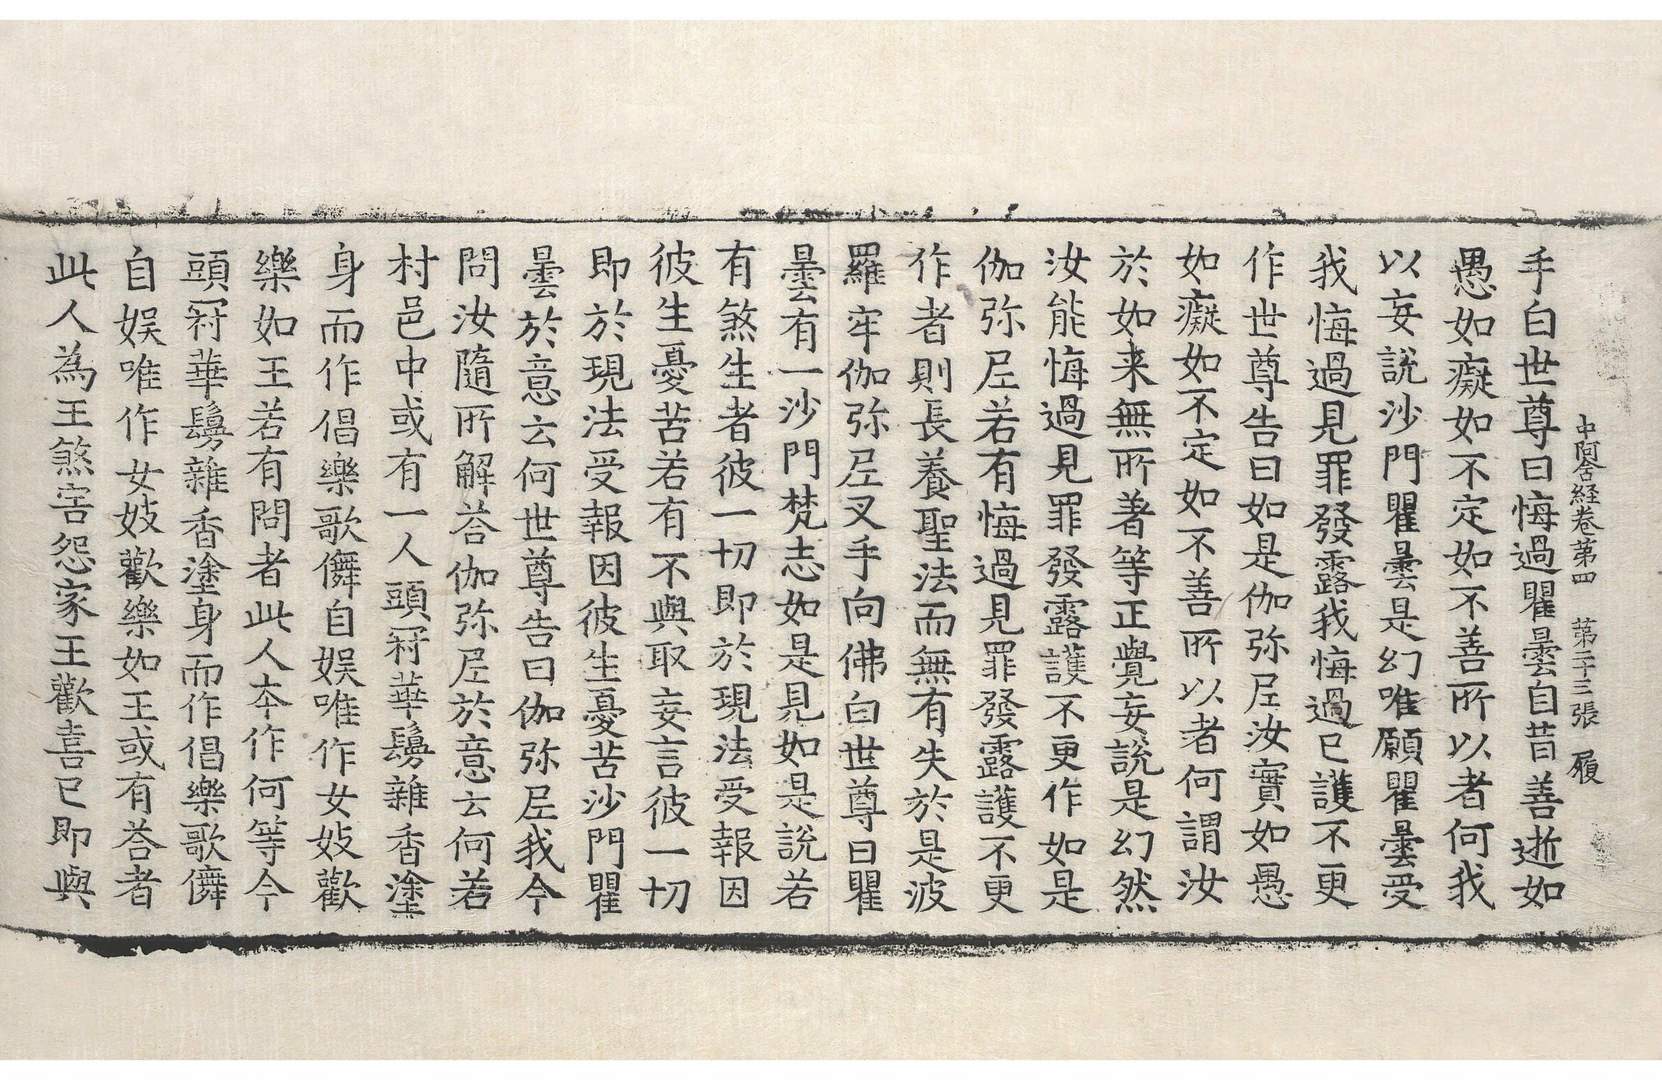 中阿含経卷第四　第二十三張　履
手白世尊曰悔過瞿曇自昔善逝如
愚如癡如不定如不善所以者何我
以妄說沙門瞿曇是幻唯願瞿曇受
我悔過見罪發露我悔過已護不更
作世尊告曰如是伽弥𡰱汝實如愚
如癡如不定如不善所以者何謂汝
於如来無所著等正覺妄說是幻然
汝能悔過見罪發露護不更作如是
伽弥𡰱若有悔過見罪發露護不更
作者則長養聖法而無有失於是波
羅牢伽弥𡰱叉手向佛白世尊曰瞿
曇有一沙門梵志如是見如是說若
有煞生者彼一切即於現法受報因
彼生憂苦若有不與取妄言彼一切
即於現法受報因彼生憂苦沙門瞿
曇於意云何世尊告曰伽弥𡰱我今
問汝隨所解荅伽弥𡰱於意云何若
村邑中或有一人頭冠華鬘雜香塗
身而作倡樂歌儛自娱唯作女妓歡
樂如王若有問者此人夲作何等今
頭冠華鬘雜香塗身而作倡樂歌儛
自娱唯作女妓歡樂如王或有荅者
此人為王煞害怨家王歡喜已即與